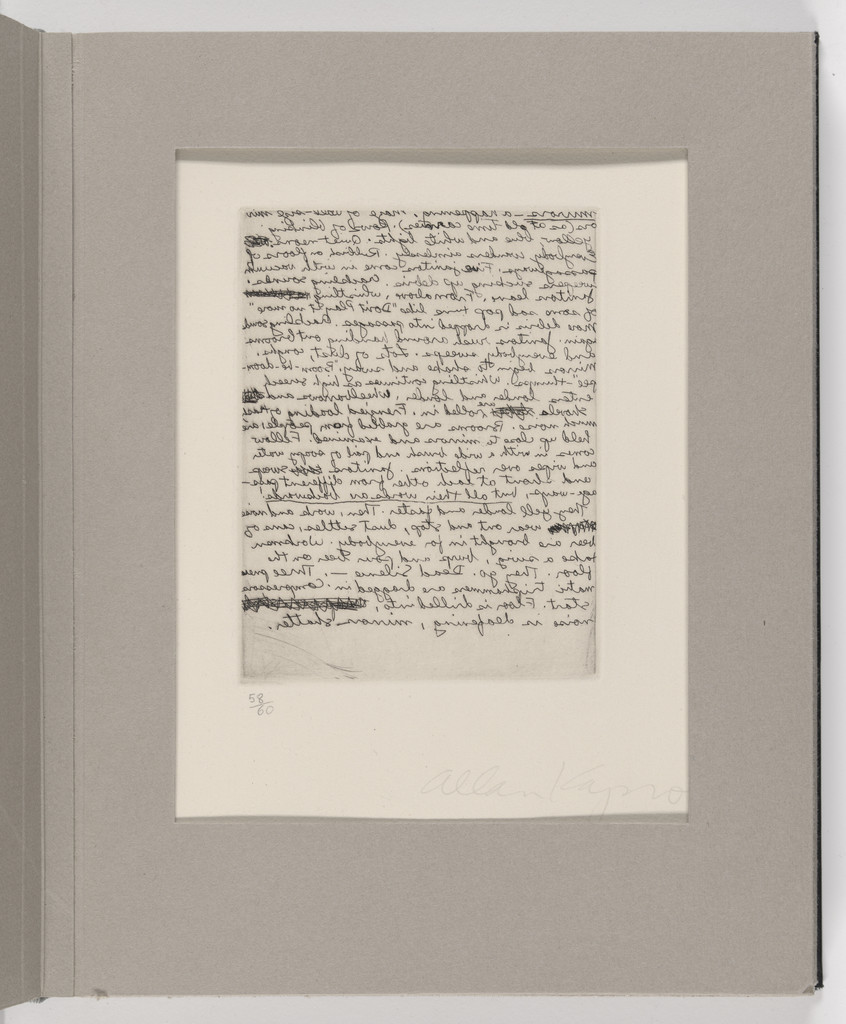 mirrors — a happening. Maze of wall-size mir
ors (as at old time carnies). Rows of blinking
yellow, blue and white lights. Quiet neons.
Everybody wanders aimlessly. Rubbish on floors of
passageways. Five janitors come in with vacuum
sweepers sucking up debris. Crackling sounds.
Janitors leave. From above, whistling
of some sad pop tune like "Don't Play it no more"
More debris is dropped into passages. Crackling sound
again. Janitors rush around handing out brooms
and everybody sweeps. Lots of dust, coughs.
Mirrors begin to shake and sway, "Boom-ba-doom-
pee"-thumps). Whistling continues as high screech
enters louder and louder. Wheelbarrows and
shovels are rolled in. Frenzied loading of
much noise. Brooms are grabbed from people, are
held up close to mirrors and examined. Fellow
comes in with a wide brush and pail of soapy water
and wipes over reflections. Janitors swap
and shout at each other from different pass-
age-ways, but all their words are backwards.
They yell louder and faster. Then, work and noise
wear out and stop, dust settles, cans of
beer are brought in for everybody. Workmen
take a swing, burp, and pour beer on the
floor. They go. Dead Silence —. Three pneu
matic triphammers are dragged in. Compressors
start. Floor is drilled into,
noise is deafening, mirrors shatter.
58/60
Allan Kaprow